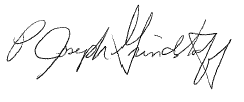 P Joseph Grindstaff